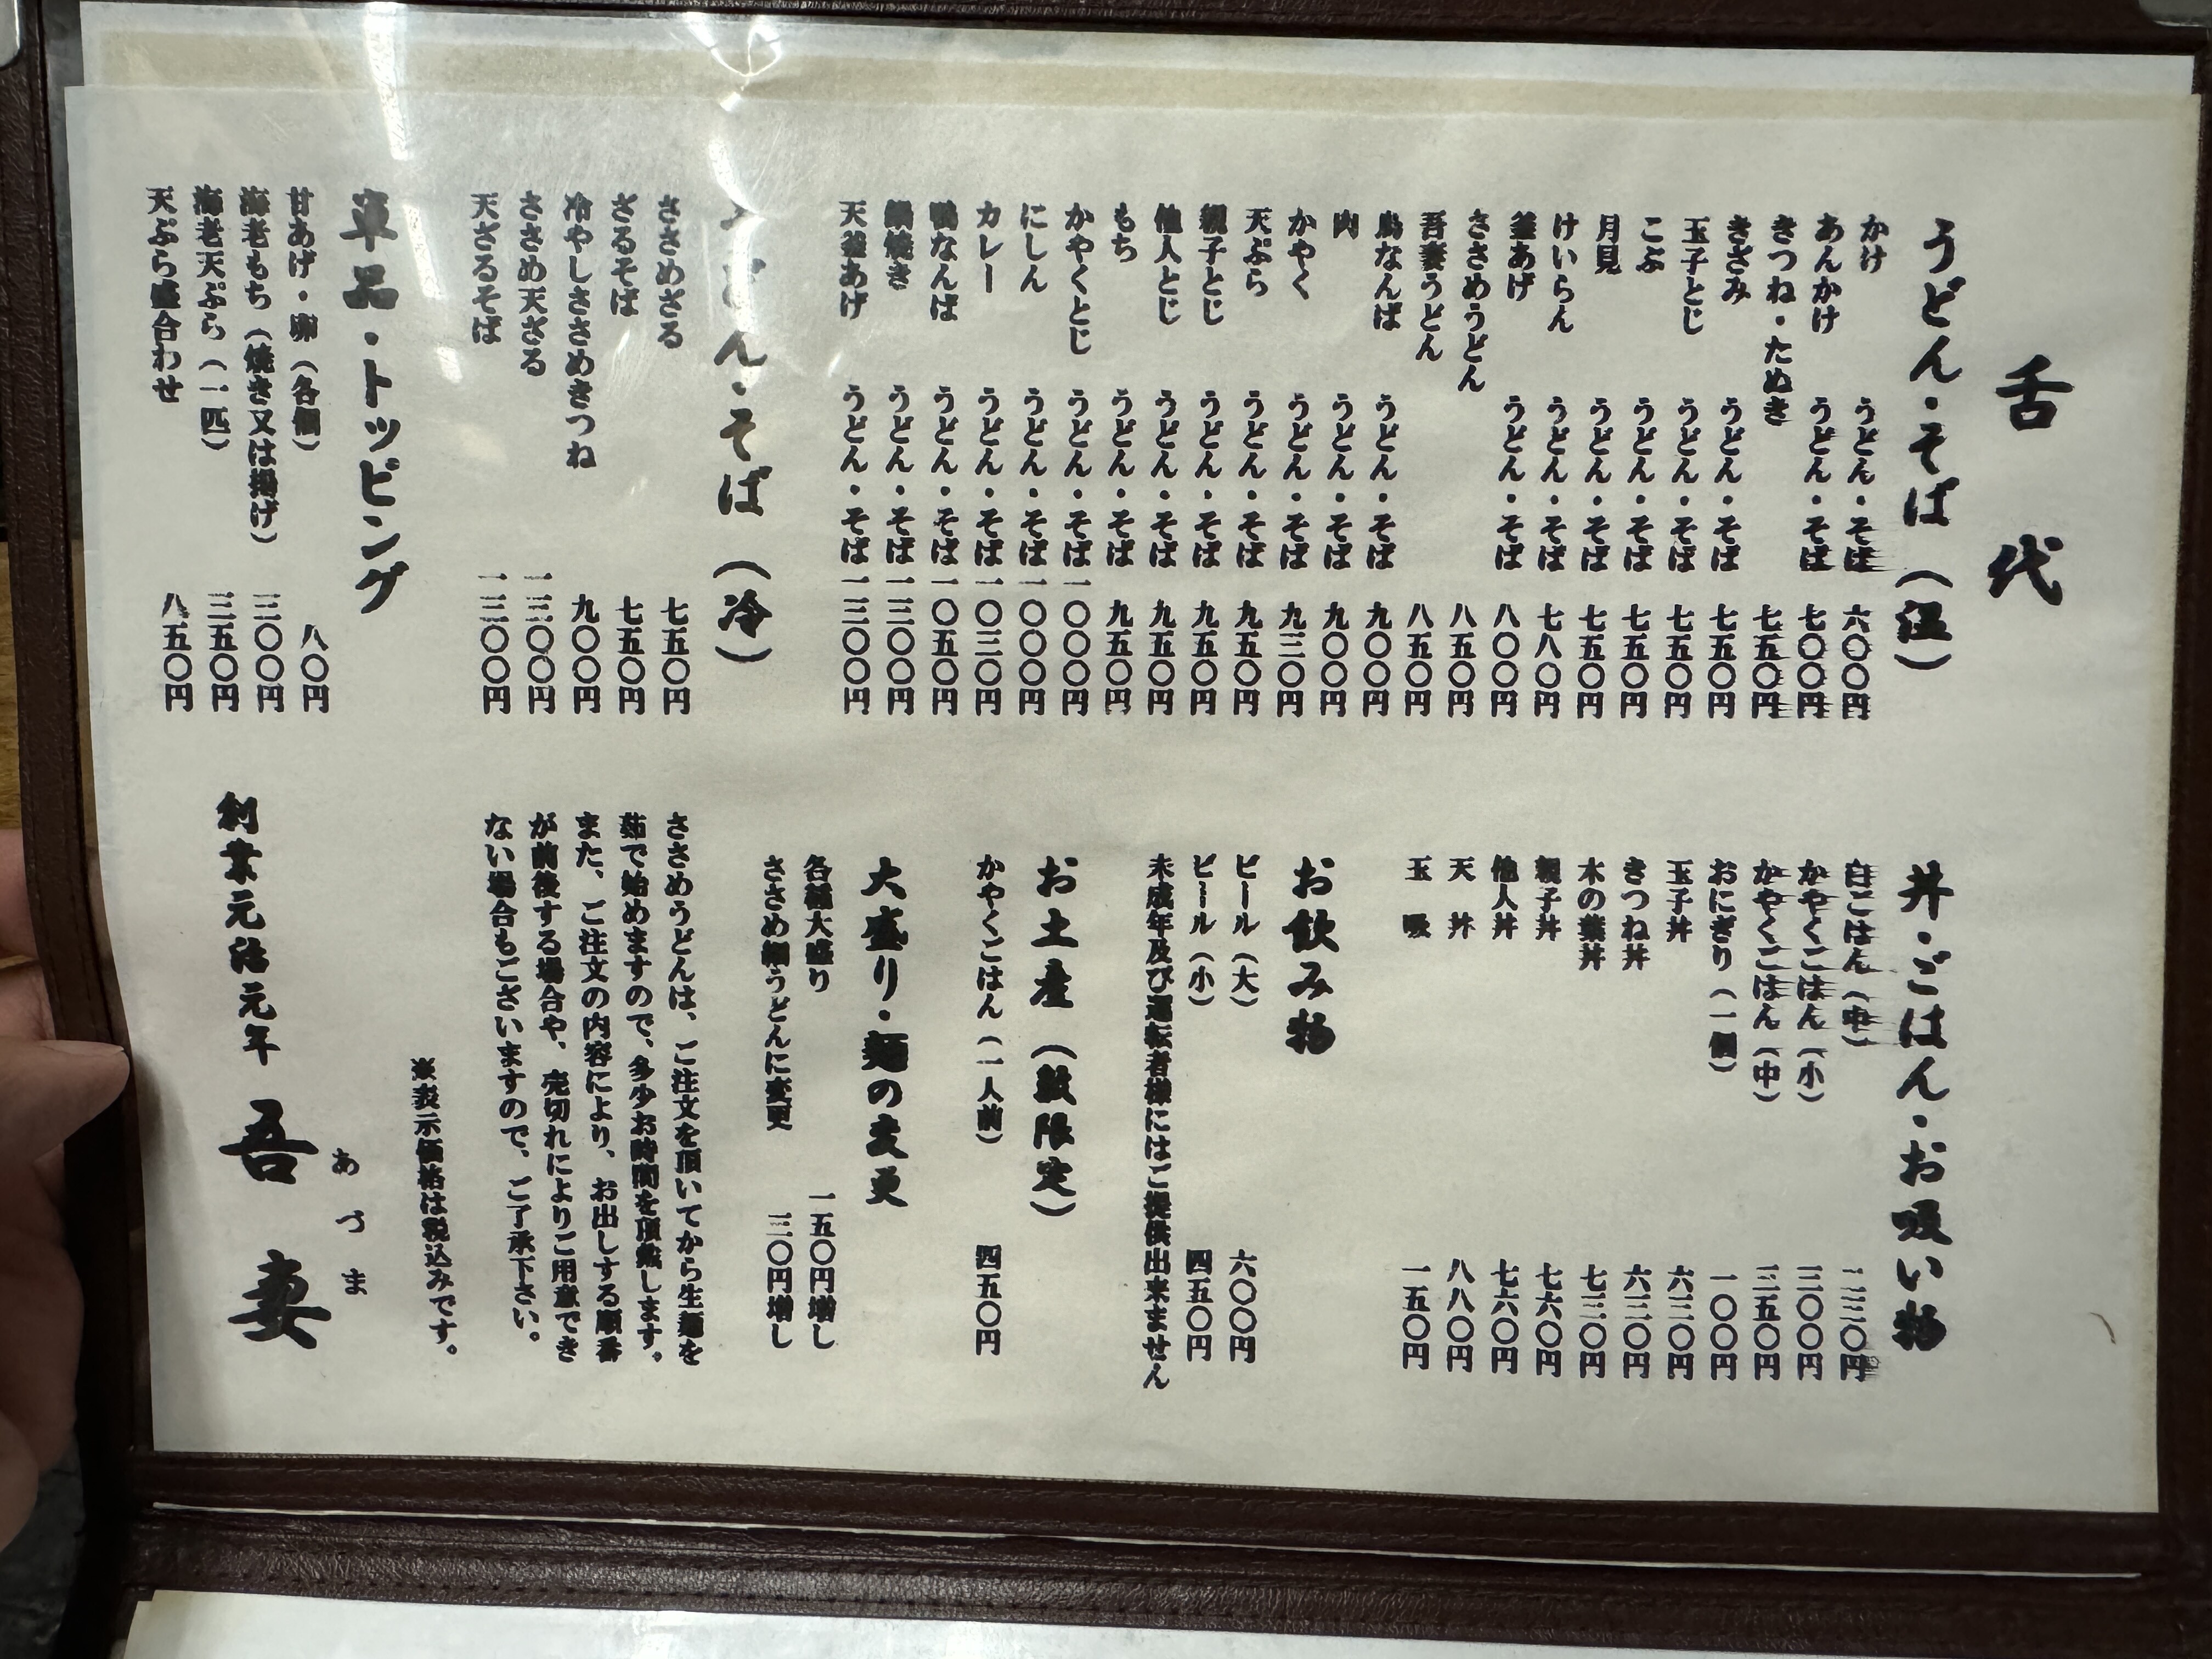 舌代
うどん・そば（温）
かけ うどん・そば 六〇〇円
あんかけ うどん・そば 七〇〇円
きつね・たぬき 七五〇円
きざみ うどん・そば 七五〇円
玉子とじ うどん・そば 七五〇円
こぶ うどん・そば 七五〇円
月見 うどん・そば 七五〇円
けいらん うどん・そば 七八〇円
釜あげ うどん・そば 八〇〇円
ささめうどん 八五〇円
吾妻うどん 八五〇円
鳥なんば うどん・そば 九〇〇円
肉 うどん・そば 九〇〇円
かやく うどん・そば 九三〇円
天ぷら うどん・そば 九五〇円
親子とじ うどん・そば 九五〇円
他人とじ うどん・そば 九五〇円
もち うどん・そば 九五〇円
かやくとじ うどん・そば 一〇〇〇円
にしん うどん・そば 一〇〇〇円
カレー うどん・そば 一〇三〇円
鴨なんば うどん・そば 一〇五〇円
鍋焼き うどん・そば 一三〇〇円
天釜あげ うどん・そば 一三〇〇円
うどん・そば（冷）
ささめざる 七五〇円
ざるそば 七五〇円
冷やしささめきつね 九〇〇円
ささめ天ざる 一三〇〇円
天ざるそば 一三〇〇円
単品・トッピング
甘あげ・卵（各個） 八〇円
海老もち（焼き又は揚げ） 三〇〇円
海老天ぷら（一匹） 三五〇円
天ぷら盛合わせ 八五〇円
丼・ごはん・お吸い物
白ごはん（中） 二三〇円
かやくごはん（小） 三〇〇円
かやくごはん（中） 三五〇円
おにぎり（一個） 一〇〇円
玉子丼 六三〇円
きつね丼 六三〇円
木の葉丼 七三〇円
親子丼 七六〇円
他人丼 七六〇円
天丼 八八〇円
玉吸 一五〇円
お飲み物
ビール（大） 六〇〇円
ビール（小） 四五〇円
未成年及び運転者様にはご提供出来ません
お土産（数限定）
かやくごはん（一人前） 四五〇円
大盛り・麺の変更
各種大盛り 一五〇円増し
ささめ細うどんに変更 三〇円増し
ささめうどんは、ご注文を頂いてから生麺を
茹で始めますので、多少お時間を頂戴します。
また、ご注文の内容により、お出しする順番
が前後する場合や、売切れによりご用意でき
ない場合もございますので、ご了承下さい。
※表示価格は税込みです。
創業元治元年 吾妻
あづま